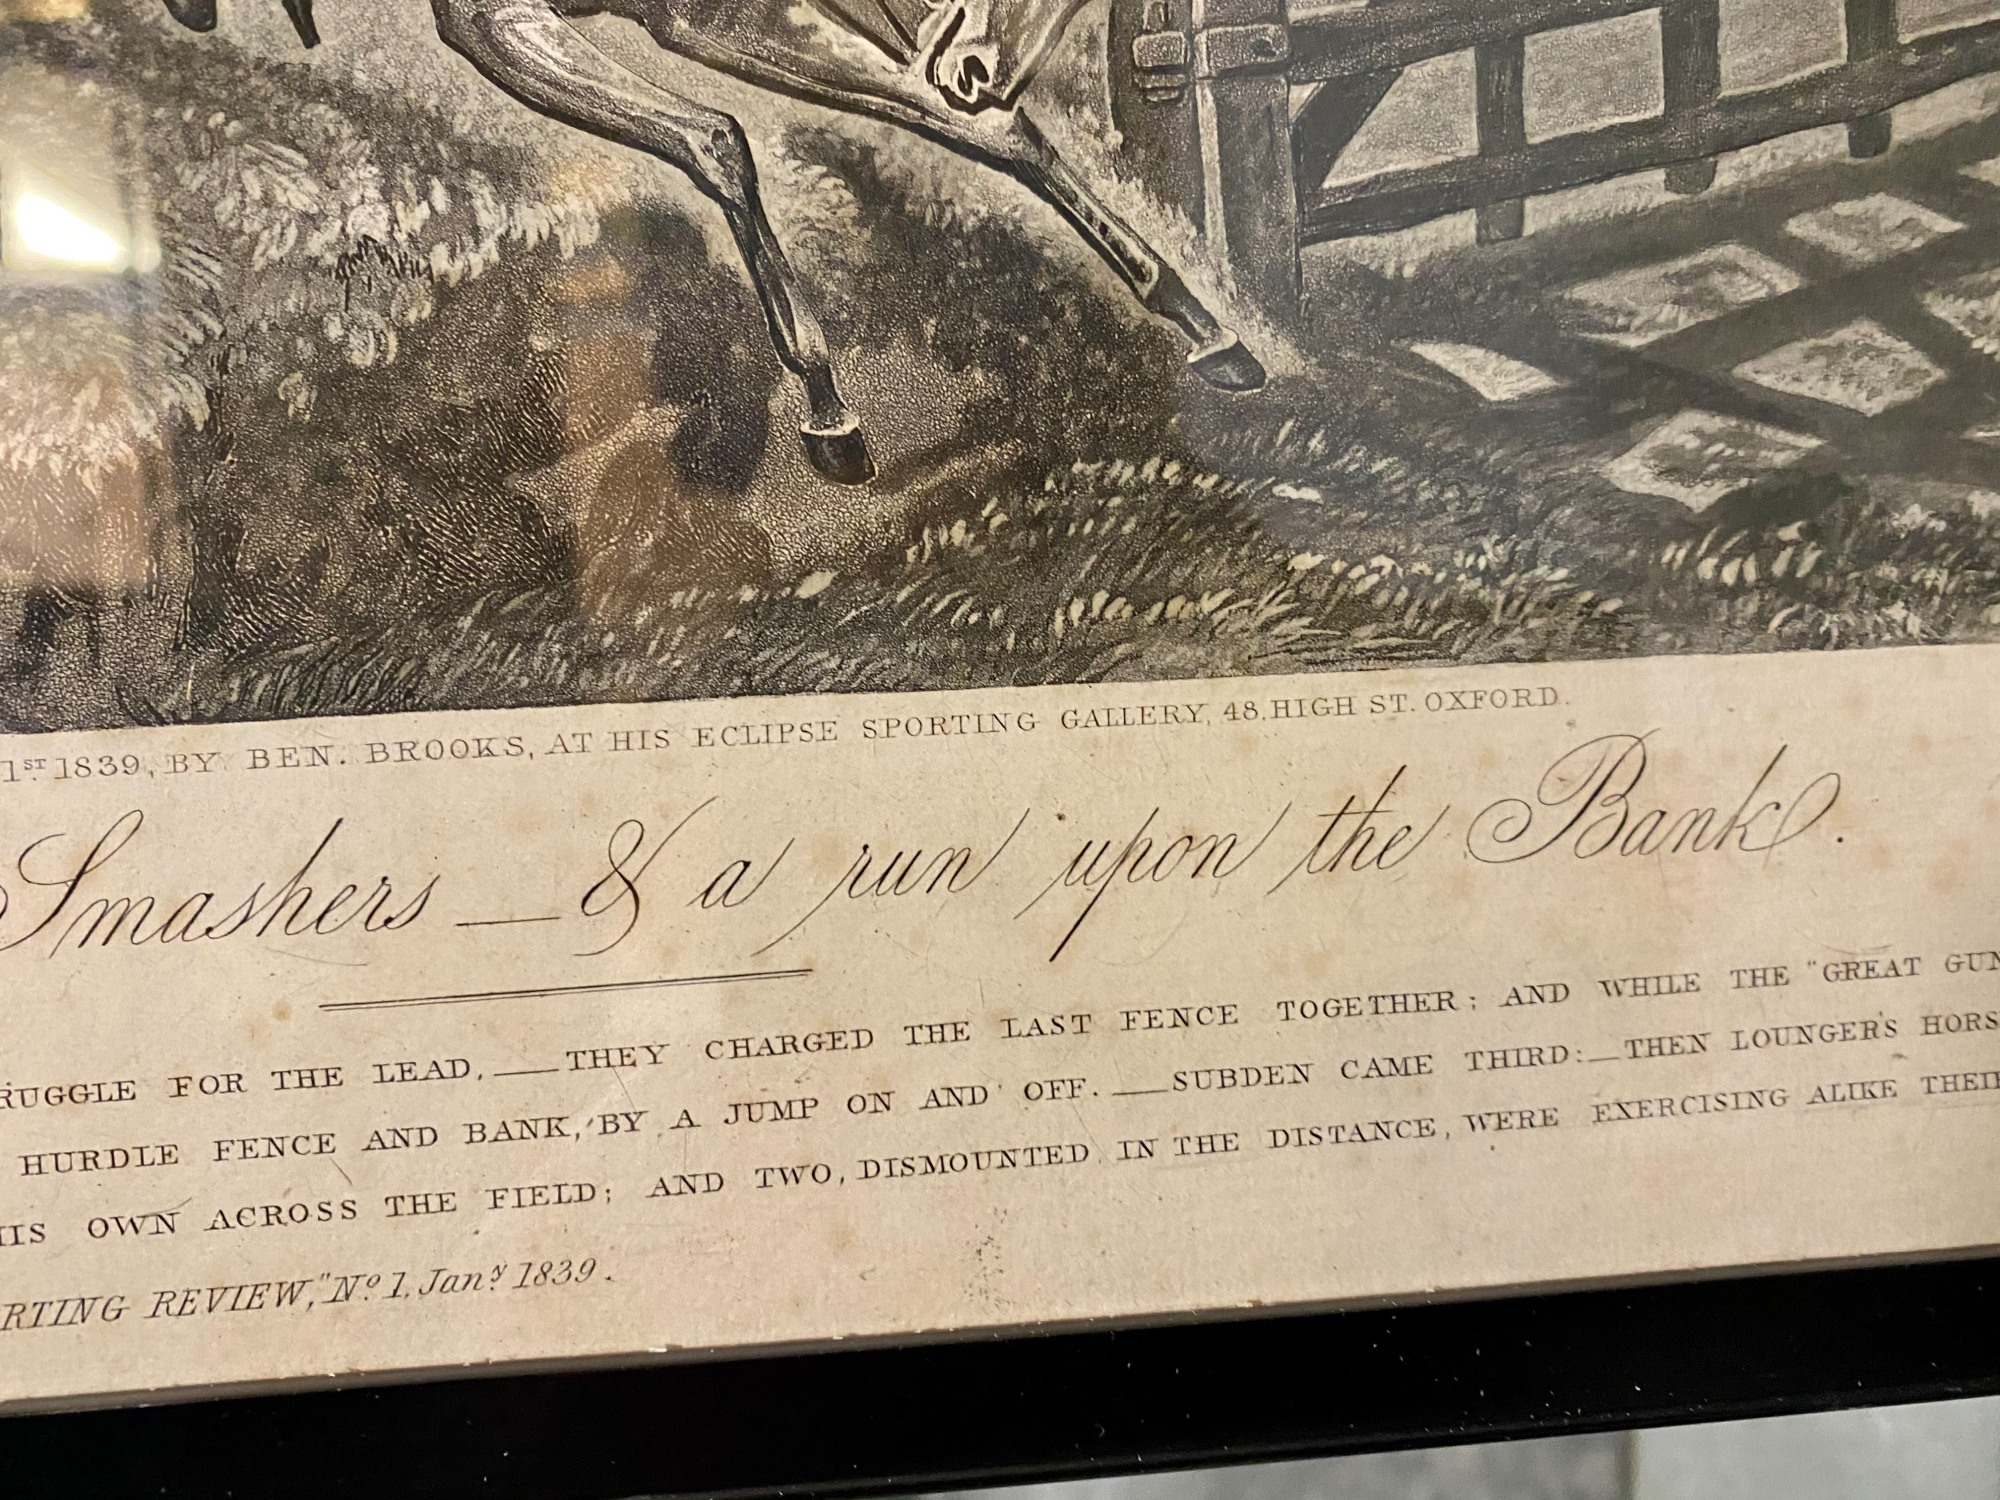 1ST 1839, BY BEN. BROOKS, AT HIS ECLIPSE SPORTING GALLERY, 48, HIGH ST. OXFORD.
Smashers — & a run upon the Bank.
RUGGLE FOR THE LEAD, — THEY CHARGED THE LAST FENCE TOGETHER; AND WHILE THE "GREAT GUN
HURDLE FENCE AND BANK, BY A JUMP ON AND OFF. — SUBDEN CAME THIRD: — THEN LOUNGER'S HORS
HIS OWN ACROSS THE FIELD; AND TWO, DISMOUNTED IN THE DISTANCE, WERE EXERCISING ALIKE THEIR
RTING REVIEW," No. 1, Jany. 1839.